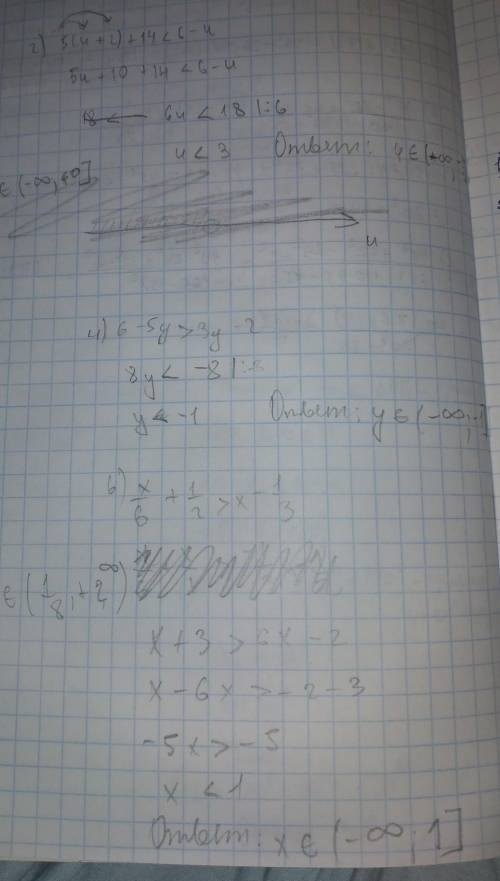 2) 5(u + 2) + 14 < 6 - u
5u + 10 + 14 < 6 - u
6u < 18 |:6
u < 3 Ответ: u ∈ (-∞;
∈ (-∞; +0]
u
4) 6 - 5y > 3y - 2
8y < -8 |:8
y < -1 Ответ: y ∈ (-∞; -1]
6) x/6 + 1/2 > x - 1/3
∈ (1/8; +∞)
x + 3 > 6x - 2
x - 6x > -2 - 3
-5x > -5
x < 1
Ответ: x ∈ (-∞; 1]